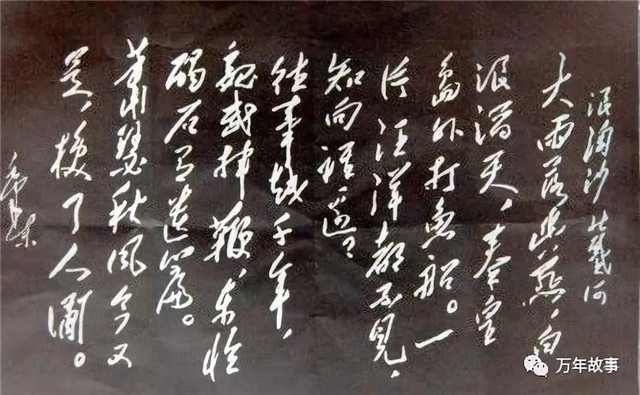 浪淘沙 北戴河
大雨落幽燕,白
浪滔天,秦皇
岛外打鱼船。一
片汪洋都不见,
知向谁边?
往事越千年,
魏武挥鞭,东临
碣石有遗篇。
萧瑟秋风今又
是,换了人间。
毛泽东
万年故事